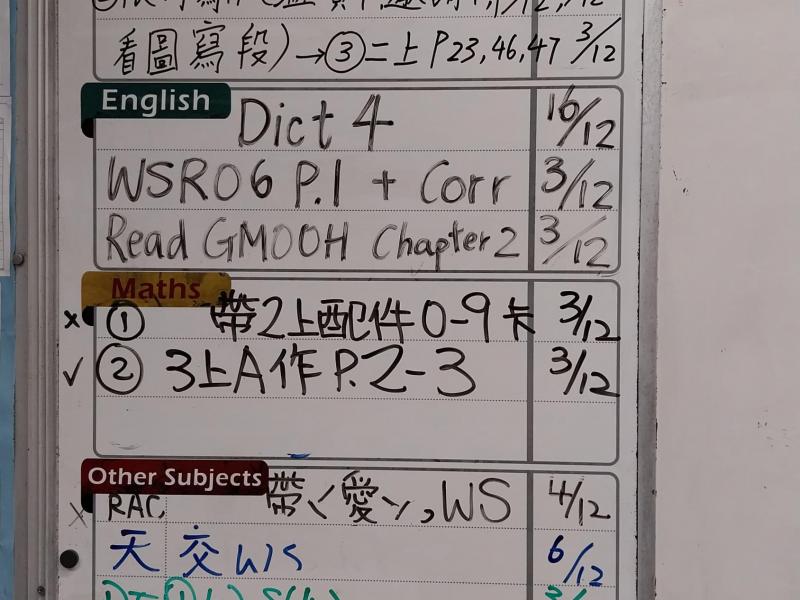 看圖寫段)→③二上 P23,46,47 3/12
English
Dict 4 16/12
WSR06 P.1 + Corr 3/12
Read GMOOH Chapter 2 3/12
Maths
x ① 帶2上配件0-9卡 3/12
✓ ② 3上A作P.2-3 3/12
Other Subjects
x RAC 帶〈愛〉,WS 4/12
天 交WS 6/12